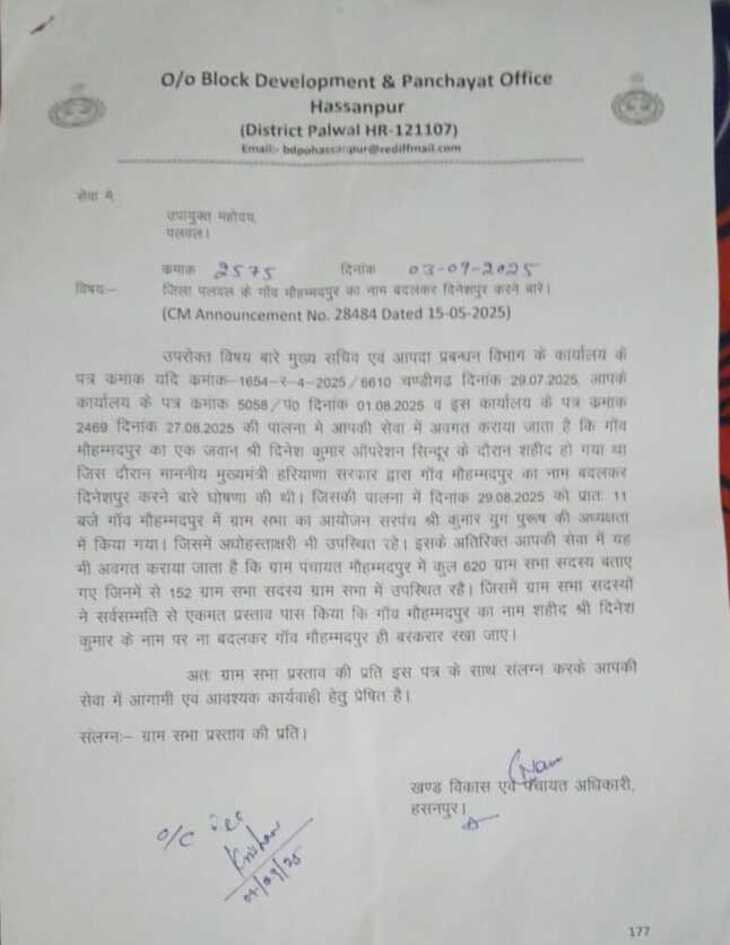 O/o Block Development & Panchayat Office
Hassanpur
(District Palwal HR-121107)
Email:- bdpohassanpur@rediffmail.com
सेवा में
उपायुक्त महोदय,
पलवल।
कमाक 2575 दिनांक 03-09-2025
विषय:- जिला पलवल के गॉव मौहम्मदपुर का नाम बदलकर दिनेशपुर करने बारे।
(CM Announcement No. 28484 Dated 15-05-2025)
उपरोक्त विषय बारे मुख्य सचिव एवं आपदा प्रबन्धन विभाग के कार्यालय के
पत्र कमाक यदि कमाक-1654-र-4-2025/6610 चण्डीगढ दिनांक 29.07.2025, आपके
कार्यालय के पत्र कमांक 5058/प0 दिनांक 01.08.2025 व इस कार्यालय के पत्र कमाक
2469 दिनांक 27.08.2025 की पालना मे आपकी सेवा में अवगत कराया जाता है कि गॉव
मौहम्मदपुर का एक जवान श्री दिनेश कुमार ऑपरेशन सिन्दूर के दौरान शहीद हो गया था
जिस दौरान माननीय मुख्यमंत्री हरियाणा सरकार द्वारा गॉव मौहम्मदपुर का नाम बदलकर
दिनेशपुर करने बारे घोषणा की थी। जिसकी पालना में दिनांक 29.08.2025 को प्रातः 11
बजे गॉव मौहम्मदपुर में ग्राम सभा का आयोजन सरपंच श्री कुमार युग पुरूष की अध्यक्षता
में किया गया। जिसमें अधोहस्ताक्षरी भी उपस्थित रहे। इसके अतिरिक्त आपकी सेवा में यह
भी अवगत कराया जाता है कि ग्राम पंचायत मौहम्मदपुर में कुल 620 ग्राम सभा सदस्य बताए
गए जिनमें से 152 ग्राम सभा सदस्य ग्राम सभा में उपस्थित रहै। जिसमें ग्राम सभा सदस्यों
ने सर्वसम्मति से एकमत प्रस्ताव पास किया कि गॉव मौहम्मदपुर का नाम शहीद श्री दिनेश
कुमार के नाम पर ना बदलकर गॉव मौहम्मदपुर ही बरकरार रखा जाए।
अतः ग्राम सभा प्रस्ताव की प्रति इस पत्र के साथ संलग्न करके आपकी
सेवा में आगामी एवं आवश्यक कार्यवाही हेतु प्रेषित है।
संलग्नः- ग्राम सभा प्रस्ताव की प्रति।
खण्ड विकास एवं पंचायत अधिकारी,
हसनपुर।
o/c
177